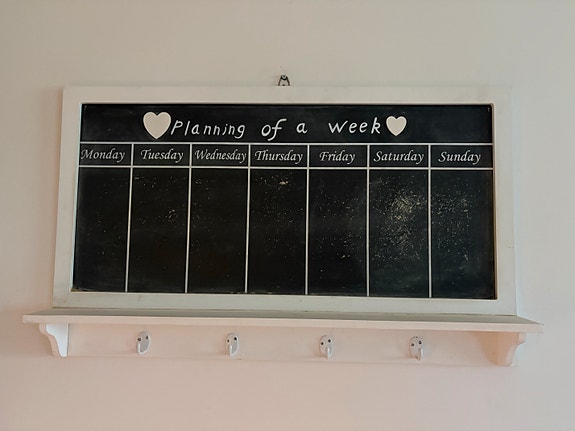 Planning of a week
Monday Tuesday Wednesday Thursday Friday Saturday Sunday